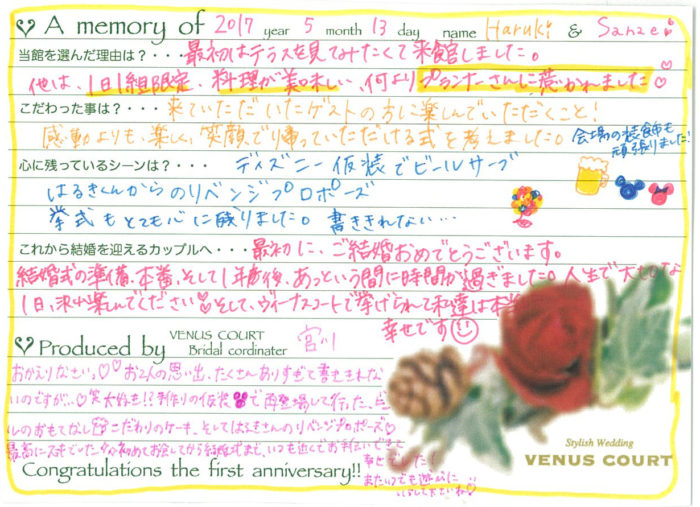 A memory of 2017 year 5 month 13 day name Haruki & Sanae
当館を選んだ理由は？・・・最初はテラスを見てみたくて来館しました。
他は、1日1組限定、料理が美味しい、何よりプランナーさんに惹かれました♡
こだわった事は？・・・来ていただいたゲストの方に楽しんでいただくこと！
感動よりも、楽しく、笑顔で帰っていただける式を考えました。会場の装飾も
頑張りました！
心に残っているシーンは？・・・ディズニー仮装でビールサーブ
はるきくんからのリベンジプロポーズ
挙式もとても心に残りました。書ききれない…
これから結婚を迎えるカップルへ・・・最初に、ご結婚おめでとうございます。
結婚式の準備、本番、そして1年後、あっという間に時間が過ぎました。人生で大切な
1日、沢山楽しんでください♡そして、ヴィーナスコートで挙げられて私達は本当
幸せです
Produced by VENUS COURT Bridal cordinater 宮川
おかえりなさい♡♡お2人の思い出、たくさんありすぎて書ききれな
いのですが、笑 大好き!!手作りの仮装で再登場して行った、ビー
ルのおもてなし こだわりのケーキ、そしてはるきさんのリベンジプロポーズ♡
最高にステキでした 初めてお会いしてから結婚式まで、いつも近くでお手伝いできて
幸せでした！
またいつでも遊びに
いらしてくださいね♡
Congratulations the first anniversary!!
Stylish Wedding
VENUS COURT